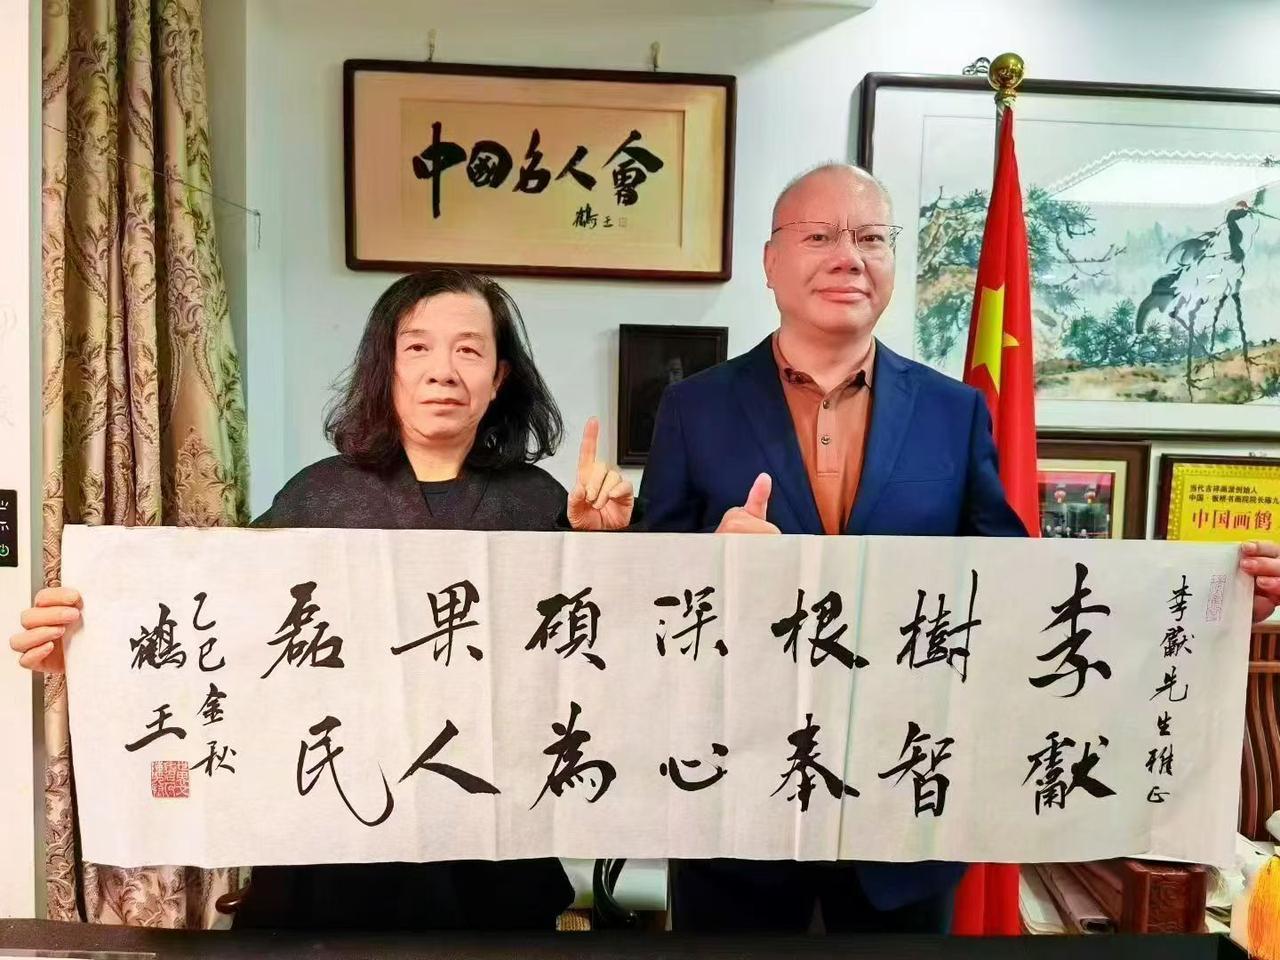 中国名人會
鶴王
李獻先生雅正
李樹根深碩果磊
獻智奉心為人民
乙巳金秋
鶴王
当代吉祥画派创始人
中国画鹤